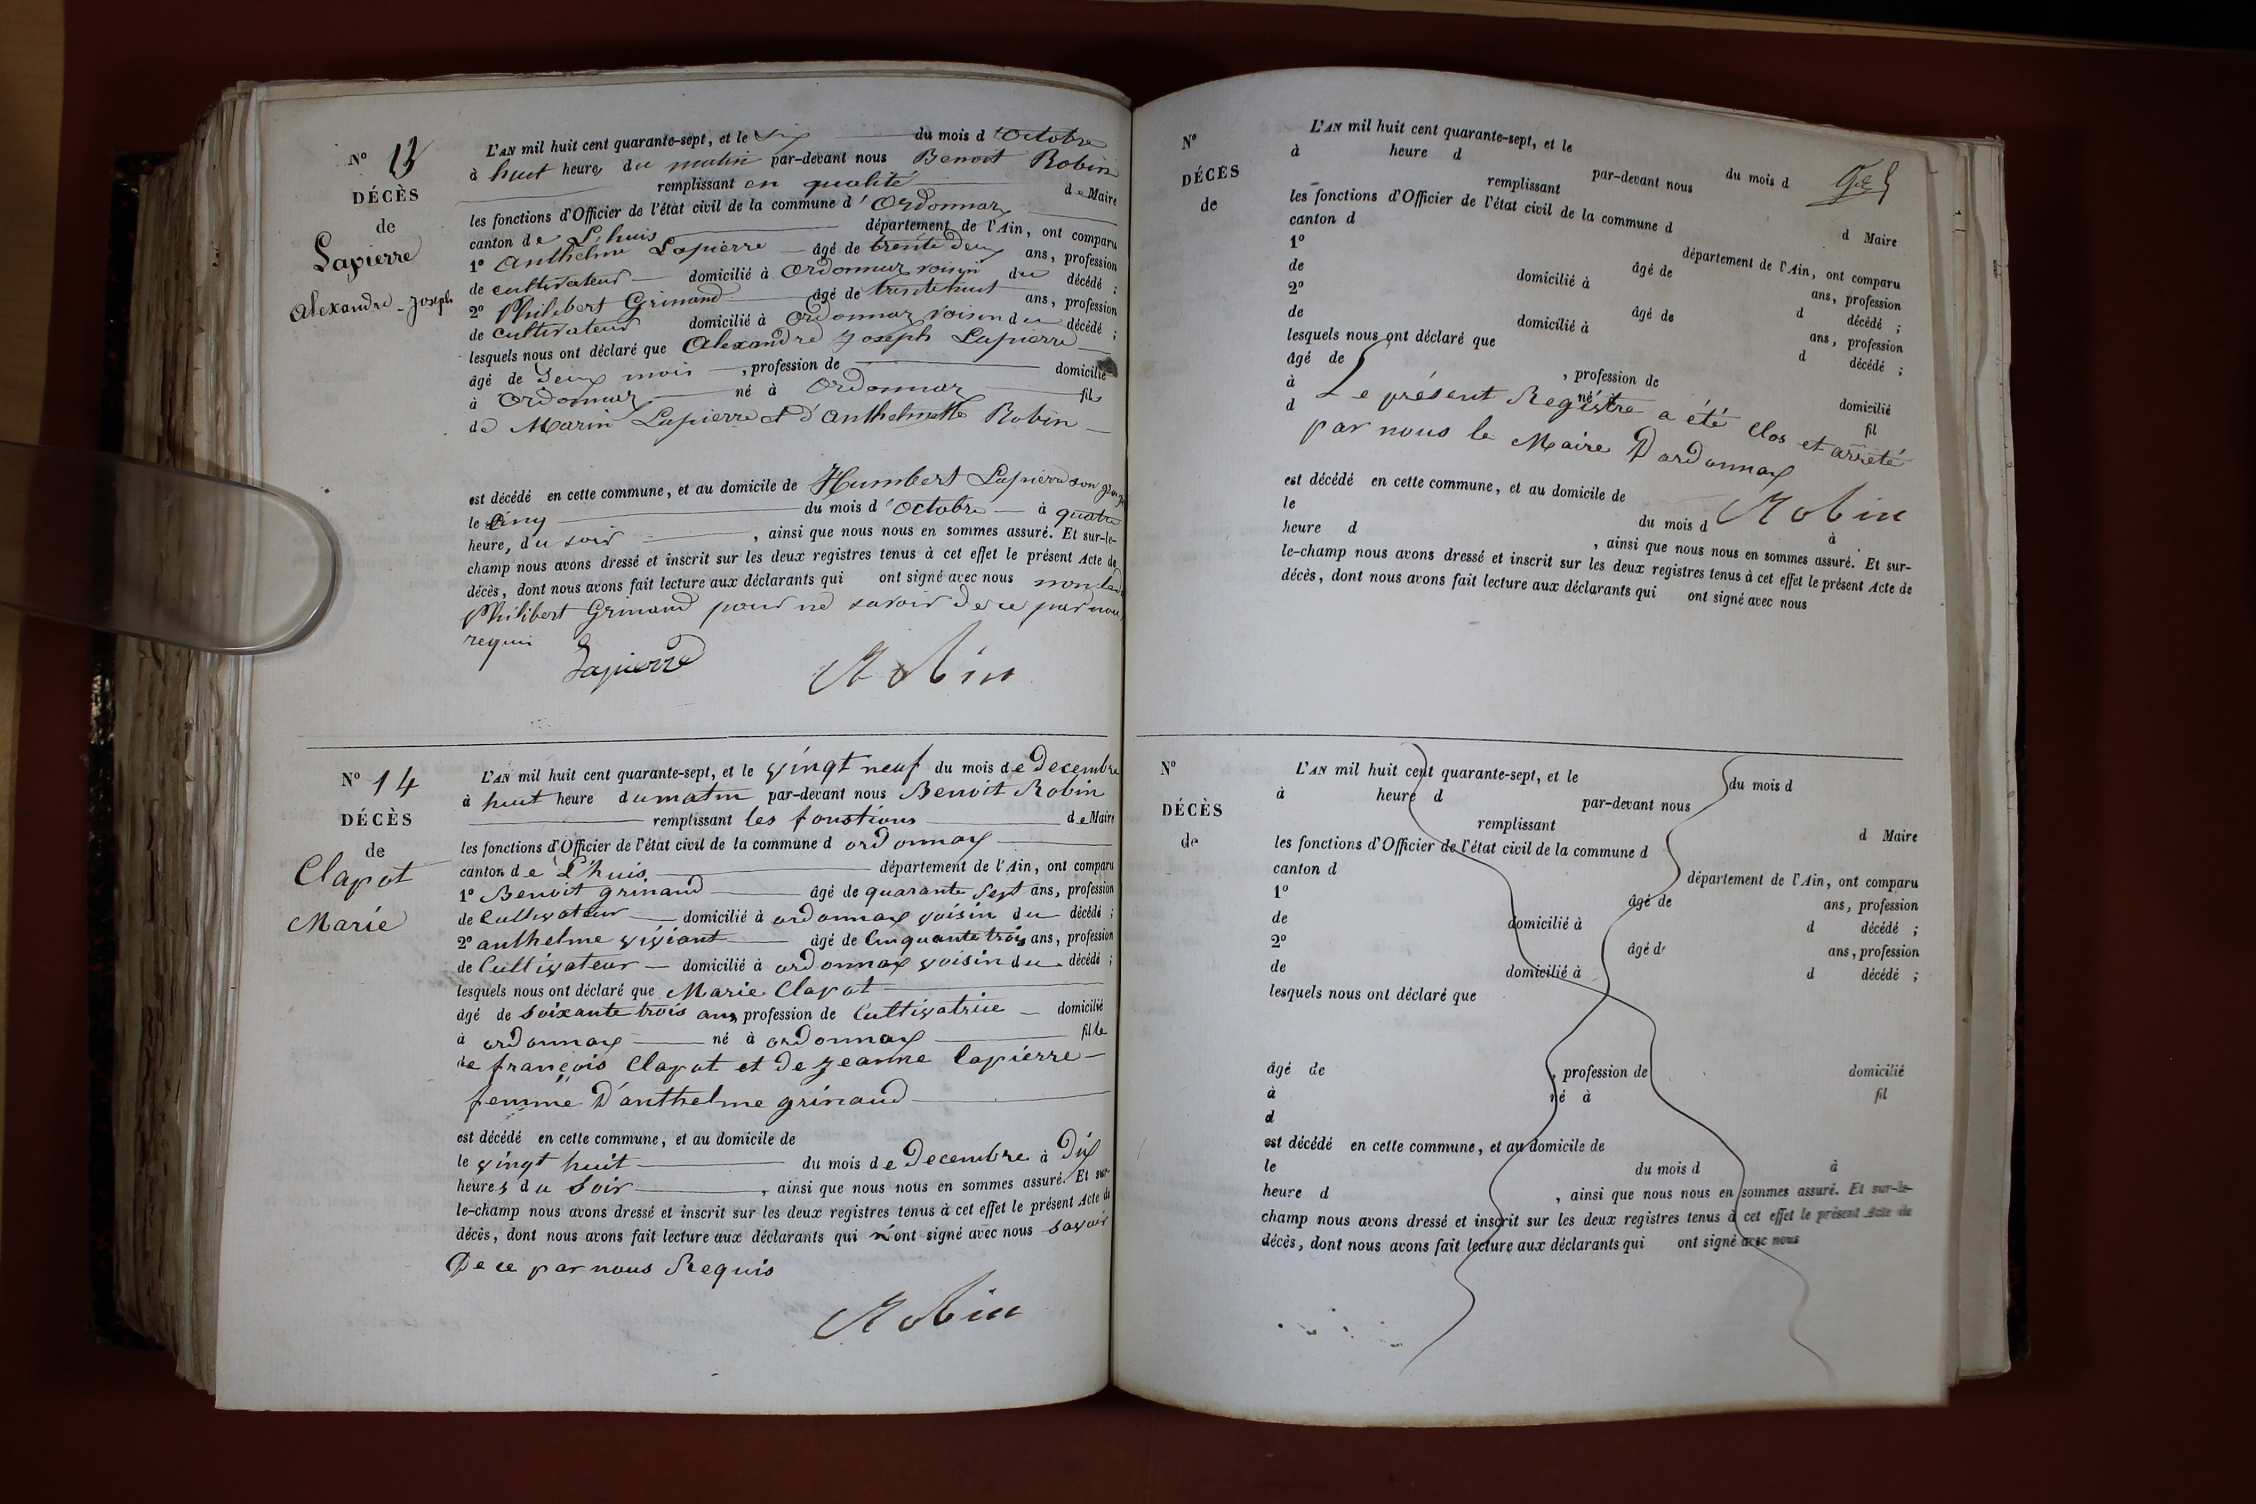 N° 13
DÉCÈS
de
Lapierre
Alexandre-Joseph
L'AN mil huit cent quarante-sept, et le six du mois d'Octobre
à huit heures du matin par-devant nous Benoit Robin
remplissant en qualité de Maire
les fonctions d'Officier de l'état civil de la commune d'Ordonnaz
canton de L'huis département de l'Ain, ont comparu
1° Anthelme Lapierre âgé de trente deux ans, profession
de cultivateur domicilié à Ordonnaz voisin du décédé ;
2° Philibert Grinand âgé de trente huit ans, profession
de cultivateur domicilié à Ordonnaz voisin du décédé ;
lesquels nous ont déclaré que Alexandre Joseph Lapierre
âgé de deux mois, profession de domicilié
à Ordonnaz né à Ordonnaz fils
de Marin Lapierre et d'Anthelmette Robin
est décédé en cette commune, et au domicile de Humbert Lapierre son
le cinq du mois d'Octobre à quatre
heure, du soir, ainsi que nous nous en sommes assuré. Et sur-le-
champ nous avons dressé et inscrit sur les deux registres tenus à cet effet le présent Acte de
décès, dont nous avons fait lecture aux déclarants qui ont signé avec nous non
Philibert Grinand pour ne savoir de ce par nous
requis
Lapierre Robin
N° 14
DÉCÈS
de
Clapot
Marie
L'AN mil huit cent quarante-sept, et le vingt neuf du mois de Decembre
à huit heure du matin par-devant nous Benoit Robin
remplissant les fonstions de Maire
les fonctions d'Officier de l'état civil de la commune d ordonnaz
canton de L'huis département de l'Ain, ont comparu
1° Benoit grinand âgé de quarante sept ans, profession
de Cultivateur domicilié à ordonnaz voisin du décédé ;
2° anthelme viviant âgé de Cinquante trois ans, profession
de Cultivateur domicilié à ordonnaz voisin du décédé ;
lesquels nous ont déclaré que Marie Clapot
âgé de Soixante trois ans, profession de Cultivatrice domicilié
à ordonnaz né à ordonnaz fille
de françois Clapot et de jeanne lapierre
femme D'anthelme grinand
est décédé en cette commune, et au domicile de
le vingt huit du mois de Decembre à Dix
heures du Soir, ainsi que nous nous en sommes assuré. Et sur-
le-champ nous avons dressé et inscrit sur les deux registres tenus à cet effet le présent Acte de
décès, dont nous avons fait lecture aux déclarants qui n'ont signé avec nous Savoir
De ce par nous Requis
Robin
N°
DÉCÈS
de
L'AN mil huit cent quarante-sept, et le du mois d
à heure d par-devant nous
remplissant d Maire
les fonctions d'Officier de l'état civil de la commune d
canton d département de l'Ain, ont comparu
1° âgé de ans, profession
de domicilié à d décédé ;
2° âgé de ans, profession
de domicilié à d décédé ;
lesquels nous ont déclaré que
âgé de , profession de domicilié
à né à fil
d
Le présent Registre a été Clos et arrêté
par nous le Maire D'ordonnaz
Robin
est décédé en cette commune, et au domicile de
le du mois d à
heure d , ainsi que nous nous en sommes assuré. Et sur-
le-champ nous avons dressé et inscrit sur les deux registres tenus à cet effet le présent Acte de
décès, dont nous avons fait lecture aux déclarants qui ont signé avec nous
N°
DÉCÈS
de
L'AN mil huit cent quarante-sept, et le du mois d
à heure d par-devant nous
remplissant d Maire
les fonctions d'Officier de l'état civil de la commune d
canton d département de l'Ain, ont comparu
1° âgé de ans, profession
de domicilié à d décédé ;
2° âgé de ans, profession
de domicilié à d décédé ;
lesquels nous ont déclaré que
âgé de , profession de domicilié
à né à fil
d
est décédé en cette commune, et au domicile de
le du mois d à
heure d , ainsi que nous nous en sommes assuré. Et sur-le-
champ nous avons dressé et inscrit sur les deux registres tenus à cet effet le présent Acte de
décès, dont nous avons fait lecture aux déclarants qui ont signé avec nous